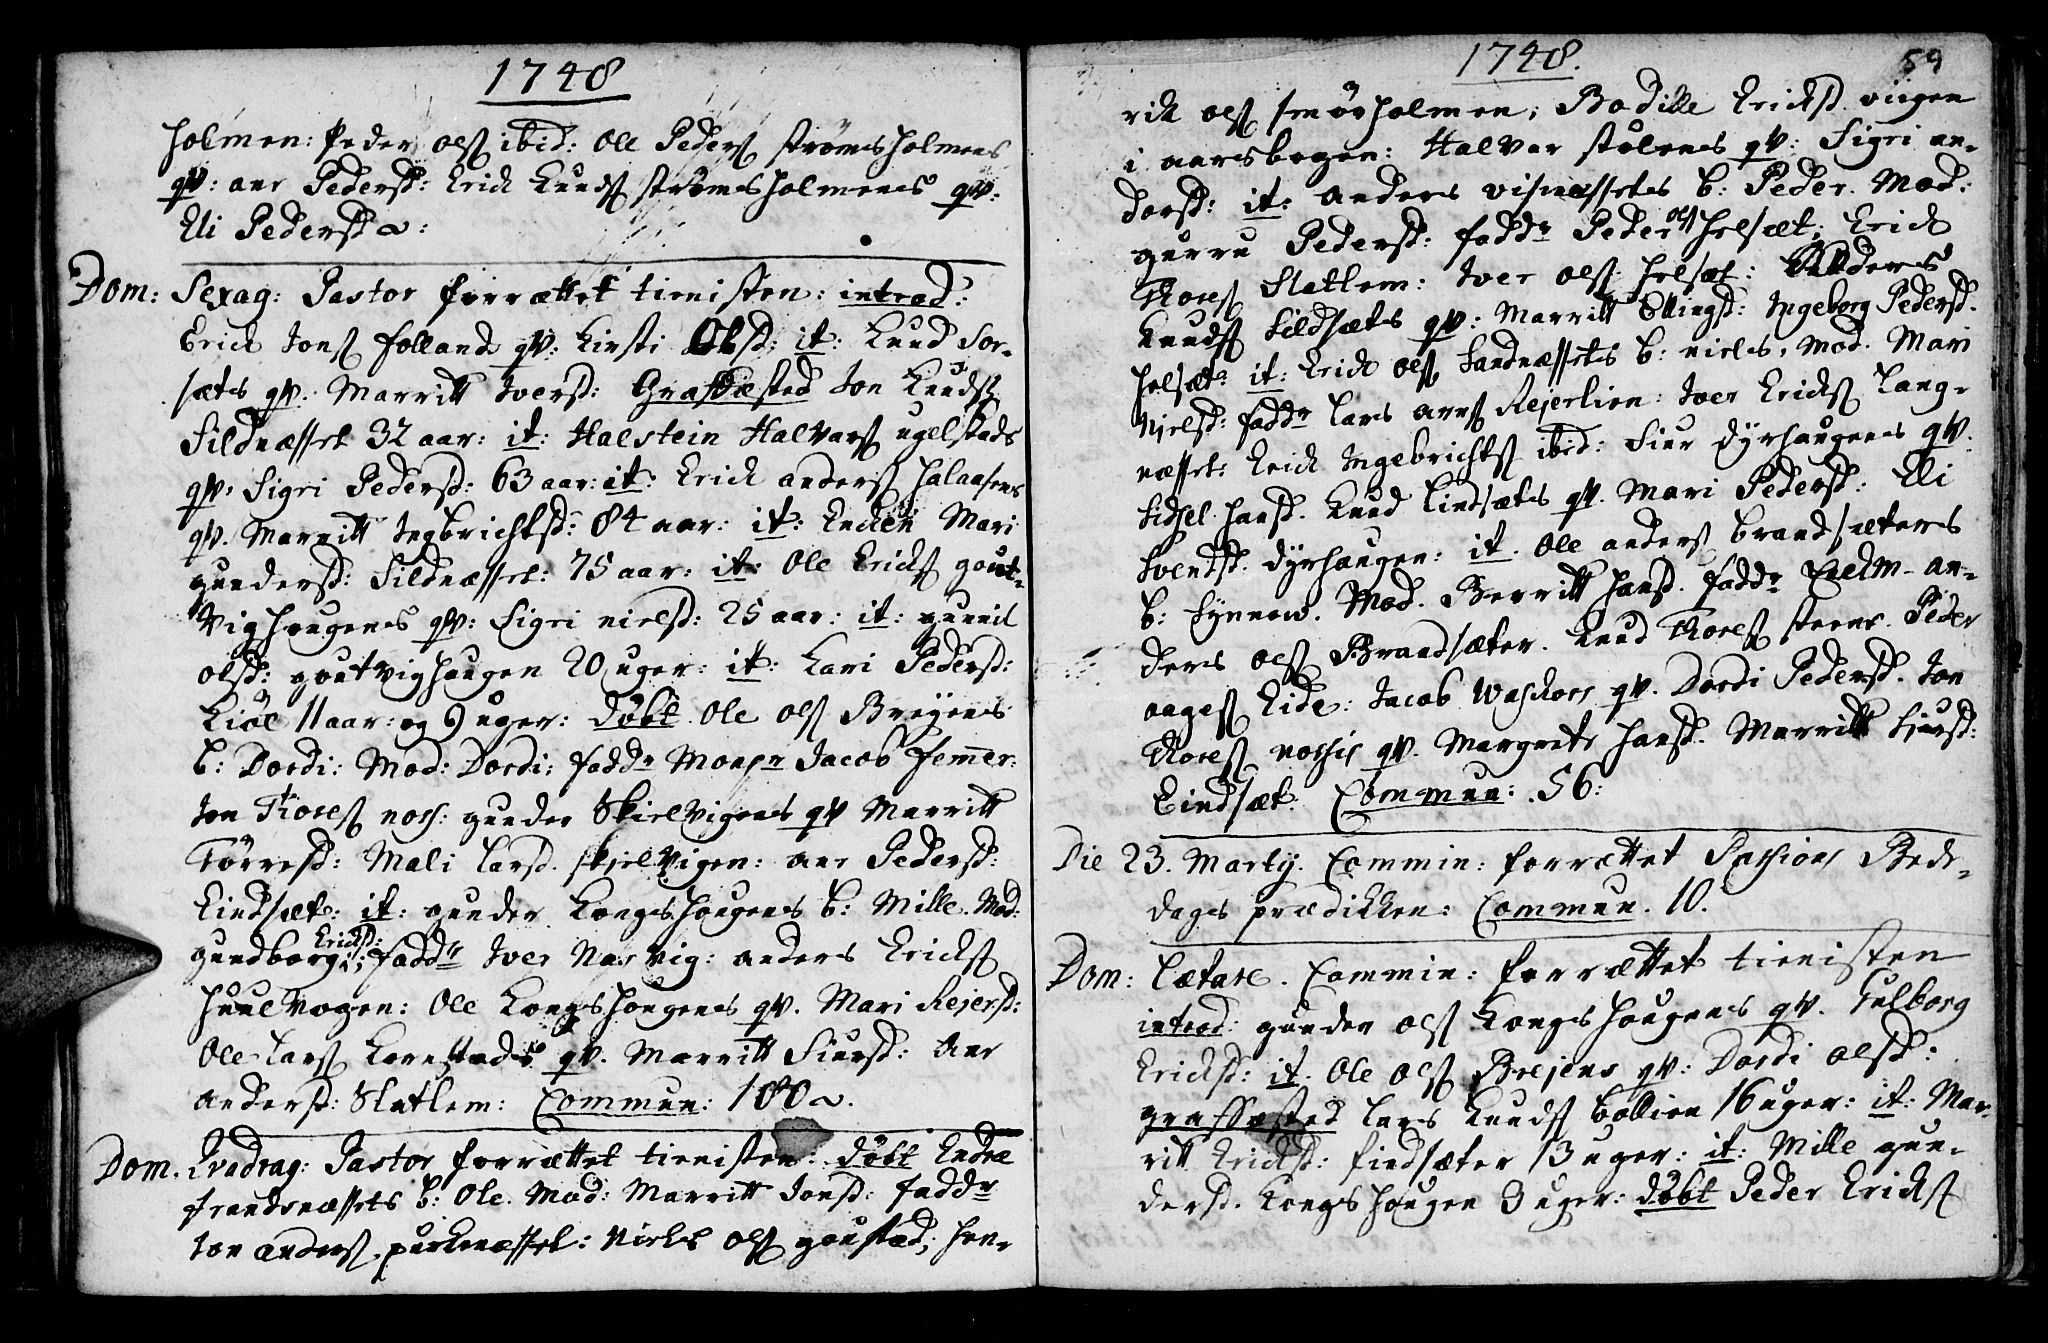 1748
holmen: Peder Ols ibid: Ole Peders Strømsholmens
qv: Ane Pedersd: Erick Knuds Strømsholmens qv:
Eli Pedersd:
Dom: Sexag: Pastor forrættet tienisten: introd:
Erick Jons Follands qv: Kirsti Olsd: it: Knud Sor-
sæts qv. Marritt Iversd: Grafsæsted Jon Knuds
Sildnæsset 32 aar: it: Halstein Halvars Ugelstads
qv. Sigri Pedersd: 63 aar: it: Erick Anders Halaasens
qv. Marritt Ingbrichtsd: 84 aar: it: Encken Mari
Gundersd: Sildnæsset: 75 aar: it: Ole Ericks Gout-
vighougens qv: Sigri Nielsd: 25 aar: it: Gunnil
Olsd: Goutvighougen 20 uger: it: Kari Pedersd:
11 aar: og 9 uger: døbt Ole Ols Brejens
b: Dordi: Mod: Dordi: fadd.r Mons.r Jacob Femmer:
Jon Thores Nos: Gunder Skielvigens qv Marritt
Torresd: Mali Larsd. Skjelvigen: Ane Pedersd:
Eindsæt: it: Gunder Kongshougens b: Mille. Mod:
Gundborg Ericksd: fadd.r Iver Narvig: Anders Ericks
Huulvogen: Ole Kongshougens qv. Mari Rejersd:
Ole Lars Kornstads qv. Marritt Siursd: Ane
Andersd: Slatlem: Commun: 100.
Dom. Qvadrag: Pastor forrættet tienisten: døbt Endre
Strandenæssets b: Ole. Mod: Marritt Jonsd: fadd.r
Jon Anders Purkenæsset: Niels Ols Goustad; Hen-
1748. 59
rich Ols Smørholmen; Bodille Ericksd. Viigen
i Aarsbogen: Halvar Stølenes qv: Sigri An-
dorsd: it: Anders Visnæssets b: Peder. Mod:
Gurru Pedersd: fadd.r Peder Ols Holsæt: Erick
Thores Slatlem: Iver Ols Holsæt: Anders
Knuds Sildsæts qv: Marritt Ellingsd: Ingeborg Pedersd.
Holsæt: it: Erick Ols Sandnæssets b: Niels. Mod. Mari
Nielsd: fadd.r Lars Arns Rejerlien: Iver Ericks Lang-
næsset: Erick Ingebrichts ibid: Siur Dyrhaugens qv.
Sidsel Hansd. Knud Lindsæts qv. Mari Pedersd: Eli
Svendsd. Dyrhaugen: it. Ole Anders Brandsæters
b: Synnow. Mod. Berritt Hansd. fadd.r An-
ders Ols Brandsæter. Knud Thores Steene. Peder
Aages Eide: Jacob Waskoes qv. Dordi Pedersd. Jon
Thores Nosses qv. Margrete Hansd. Marritt Sjursd:
Eindsæt: Commun: 56:
Die 23. Martij. Commin: forrættet Passions Bede-
dags prædikken: Commun. 10.
Dom: Lætare. Commin: forrættet tienisten
introd: Gunder Ols Kongshougens qv. Gulborg
Ericksd: it. Ole Ols Brejens qv: Dordi Olsd:
grafsæsted Lars Knuds Bollien 16 uger: it: Mar-
ritt Ericksd: Findsæter 13 uger: it: Mille Gun-
dersd. Kongshougen 3 uger: døbt Peder Ericks